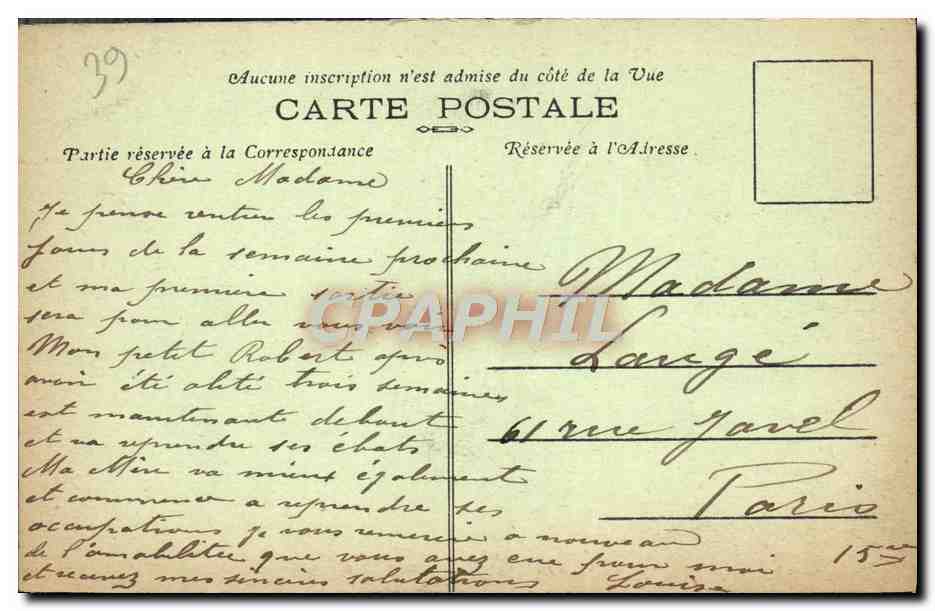 39
Aucune inscription n'est admise du côté de la Vue
CARTE POSTALE
Partie réservée à la Correspondance
Réservée à l'Adresse.
Chère Madame
Je pense rentrer les premiers
jours de la semaine prochaine
et ma première sortie
sera pour aller vous voir
Mon petit Robert après
avoir été alité trois semaines
est maintenant debout
et va reprendre ses ébats
Ma Mère va mieux également
et commence a reprendre ses
occupations je vous remercie a nouveau
de l'amabilitée que vous avez eue pour moi
et recevez mes sincères salutations Louise
Madame
Langé
61 rue Javel
Paris
15
CPAPHIL